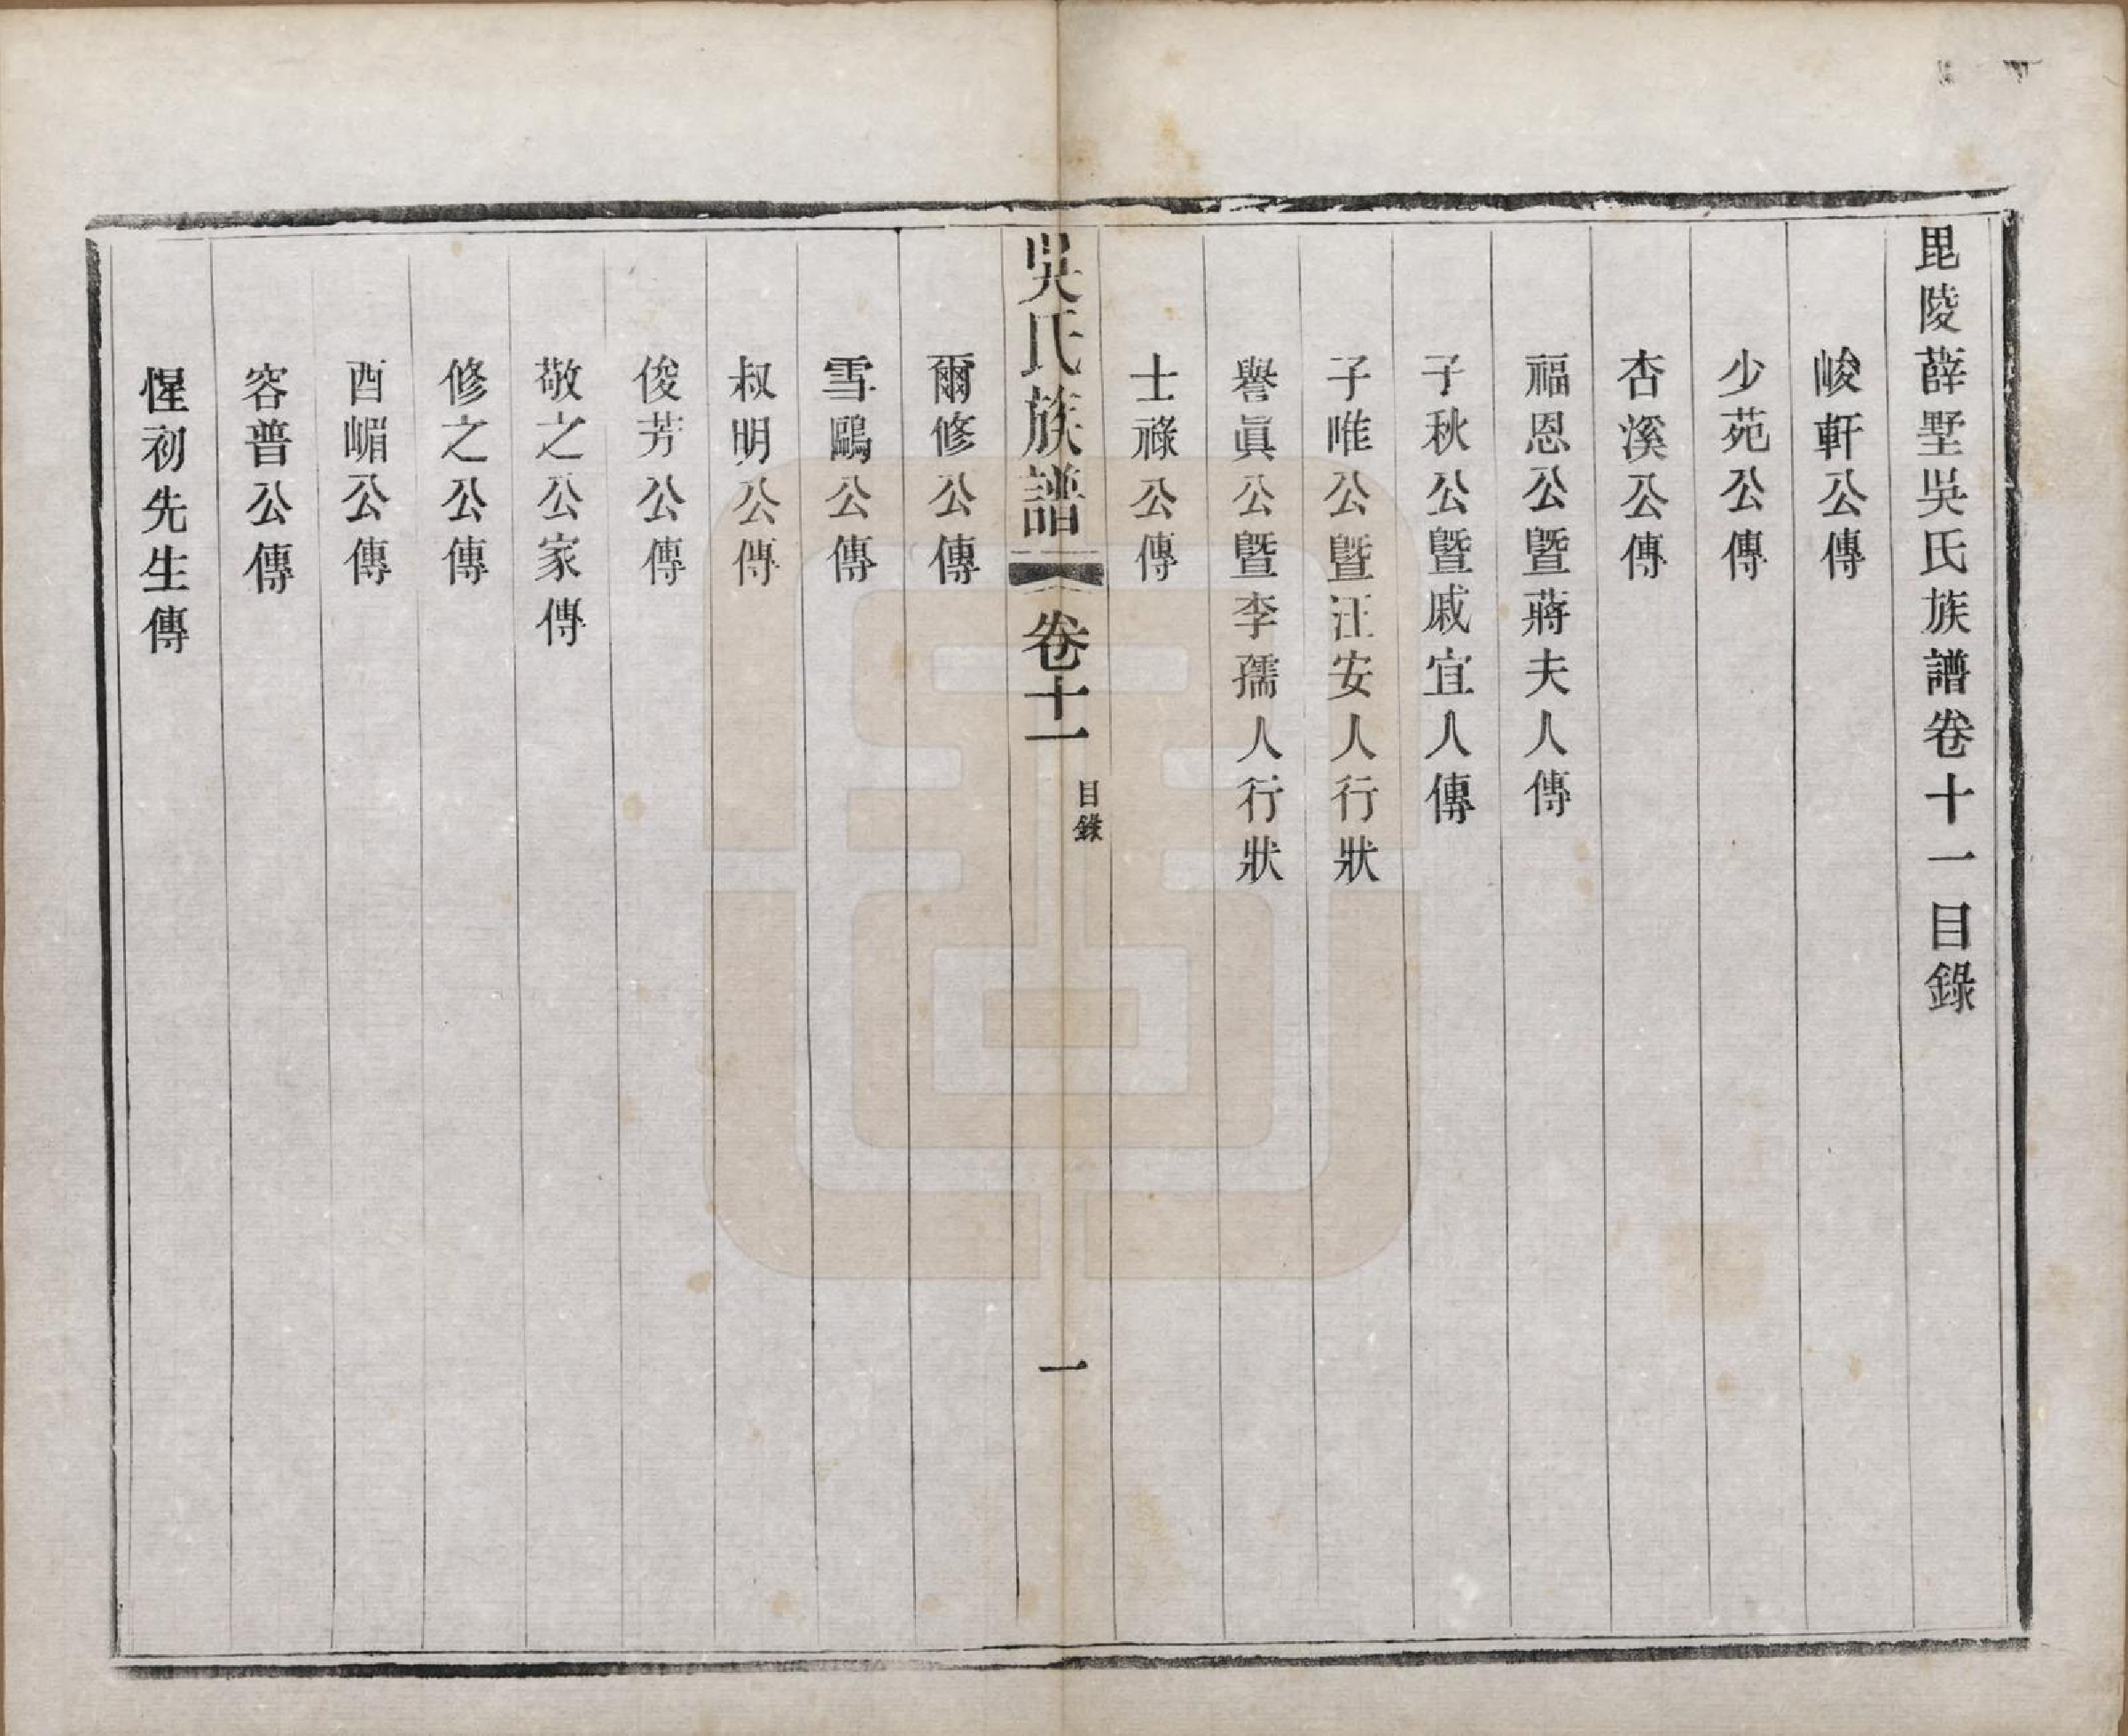 毘陵薛墅吳氏族譜卷十一目錄
峻軒公傳
少苑公傳
杏溪公傳
福恩公曁蔣夫人傳
子秋公曁戚宜人傳
子唯公曁汪安人行狀
譽眞公曁李孺人行狀
士祿公傳
吳氏族譜
卷十一
目錄
一
爾修公傳
雪鷗公傳
叔明公傳
俊芳公傳
敬之公家傳
修之公傳
酉嵋公傳
容普公傳
惺初先生傳